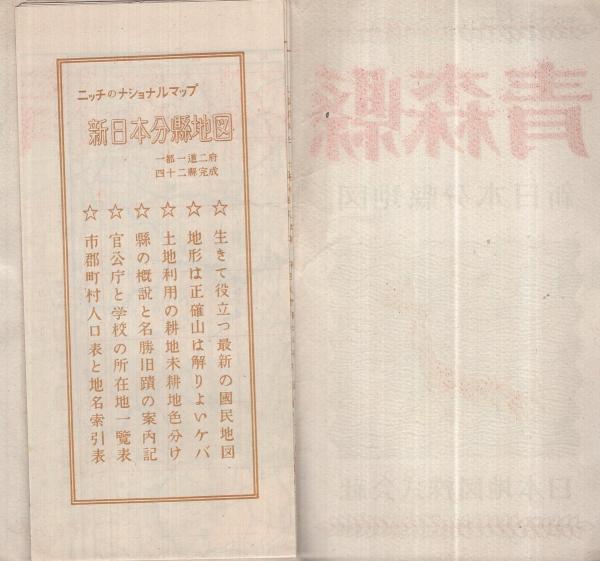 ニッチのナショナルマップ
新日本分縣地図
一都一道二府
四十二縣完成
☆ 生きて役立つ最新の國民地図
☆ 地形は正確山は解りよいケバ
☆ 土地利用の耕地未耕地色分け
☆ 縣の概説と名勝旧蹟の案内記
☆ 官公庁と学校の所在地一覽表
☆ 市郡町村人口表と地名索引表
青森縣
新日本分縣地図
日本地図株式会社